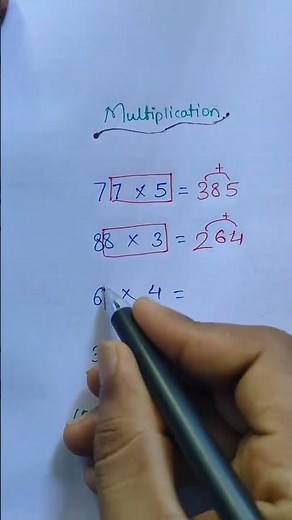 Multiplication
77 × 5 = 385
88 × 3 = 264
6 × 4 =